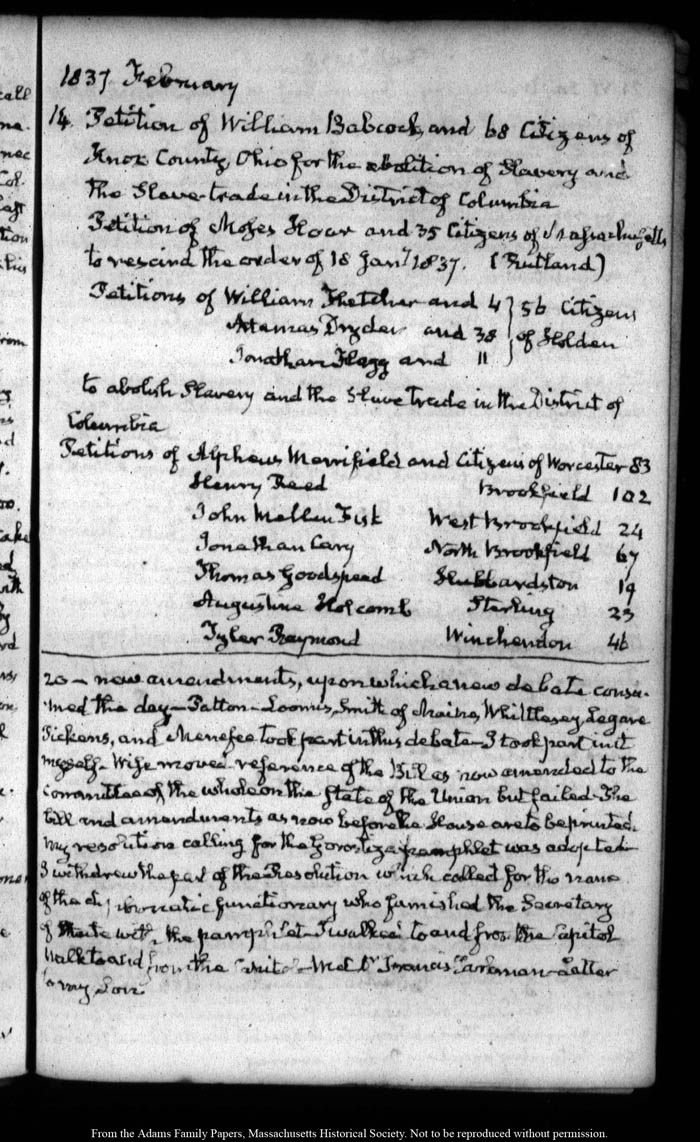 1837 February
14. Petition of William Babcock, and 68 Citizens of
Knox County, Ohio for the abolition of Slavery and
the Slave-trade in the District of Columbia
Petition of Moses Hoar and 35 Citizens of Massachusetts
to rescind the order of 18 Jany 1837. (Rutland)
Petitions of William Fletcher and 4 } 56 Citizens
Artemas Dryden and 38 } of Holden
Jonathan Flagg and 11
to abolish Slavery and the Slave Trade in the District of
Columbia
Petitions of Alpheus Merrifield and Citizens of Worcester 83
Henry Reed Brookfield 102
John Mellen Fisk West Brookfield 24
Jonathan Cary North Brookfield 67
Thomas Goodspeed Hubbardston 19
Augustine Holcomb Sterling 23
Tyler Raymond Winchendon 46
20 — new amendments, upon which a new debate consu-
med the day— Patton—Loomis, Smith of Maine, Whittlesey, Legare
Pickens, and Menefee took part in this debate—I took part in it
myself. Wise moved reference of the Bill as now amended to the
Committee of the whole on the State of the Union but failed—The
bill and amendments as now before the House are to be printed.
My resolution calling for the Gorostiza pamphlet was adopted—
I withdrew the part of the Resolution which called for the name
of the diplomatic functionary who furnished the Secretary
of State with the pamphlet—I walked to and from the Capitol
Walk to and from the Capitol—Met Dr Francis Parkman—Letter
to my Son
From the Adams Family Papers, Massachusetts Historical Society. Not to be reproduced without permission.